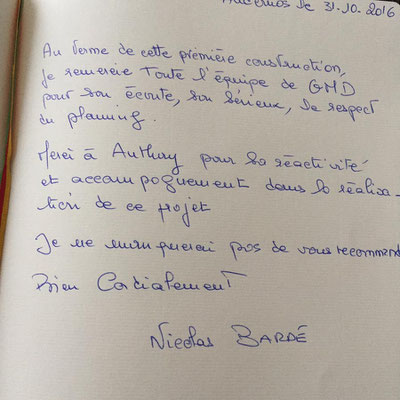 le 31.10.2016
Au terme de cette première construction,
je remercie Toute l'équipe de GMD
pour son écoute, son sérieux, le respect
du planning.
Merci à Anthony pour sa réactivité
et accompagnement dans la réalisa-
tion de ce projet
Je ne manquerai pas de vous recommend
Bien Cordialement
Nicolas BARDÉ